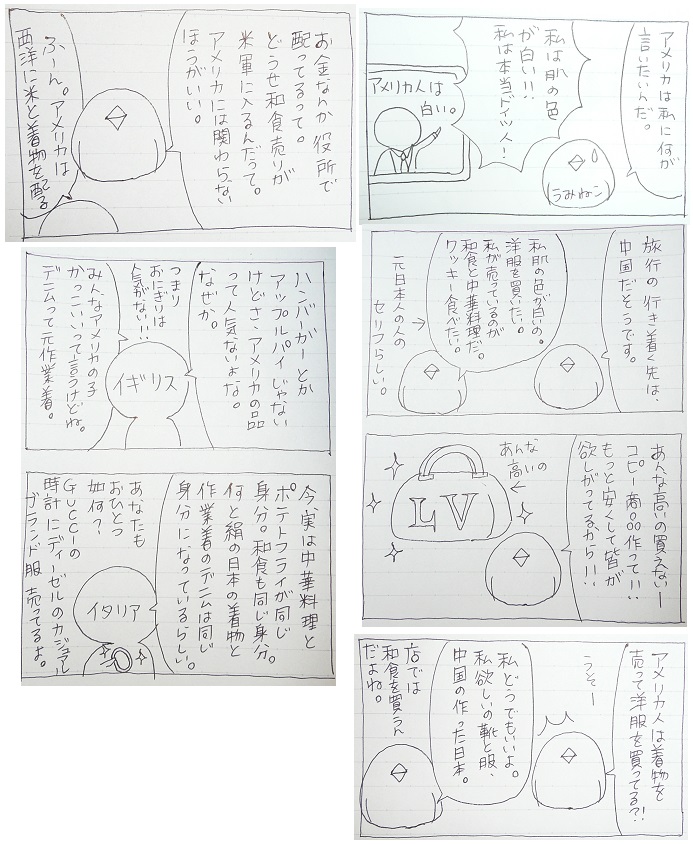 アメリカは私に何が
言いたいんだ。
私は肌の色
が白い!!
私は本当ドイツ人!
アメリカ人は
白い。
うみねこ
旅行の行き着く先は、
中国だそうです。
私肌の色が白いの。
洋服を買いたい。
私が売っているのが
和食と中華料理だ。
クッキー食べたい。
元日本人の人の
セリフらしい。
あんな高いの買えないー
コピー商品作って!!
もっと安くして皆が
欲しがってるから!!
あんな
高いの
LV
アメリカ人は着物を
売って洋服を買ってる?!
うそー
私どうでもいいよ。
私欲しいの靴と服、
中国の作った日本。
店では
和食を買うん
だよね。
お金なんか役所で
配ってるって。
どうせ和食売りが
米軍に入るんだって。
アメリカには関わらない
ほうがいい。
ふーん。アメリカは
西洋に米と着物を配る
ハンバーガーとか
アップルパイじゃない
けどさ、アメリカの品
って人気ないよな。
なぜか。
つまり
おにぎりは
人気がない!!
イギリス
みんなアメリカの子
かっこいいって言うけどね。
デニムって元作業着。
今、実は中華料理と
ポテトフライが同じ
身分。和食も同じ身分。
何と絹の日本の着物と
作業着のデニムは同じ
身分になっているらしい。
あなたも
おひとつ
如何?
Gucciの
時計にディーゼルのカジュアル
ブランド服売ってるよ。
イタリア